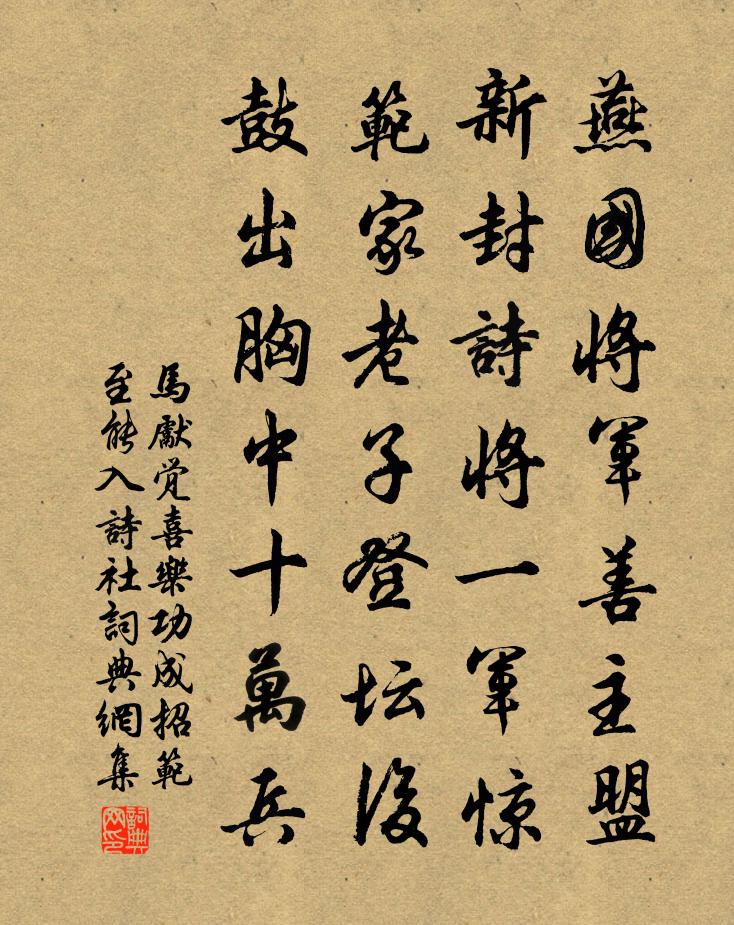 燕國將軍善主盟
新封詩將一軍惊
範家老子登坛後
鼓出胸中十萬兵
馬獻覚喜樂功成招範
至能入詩社詞典網集
詞典
网印